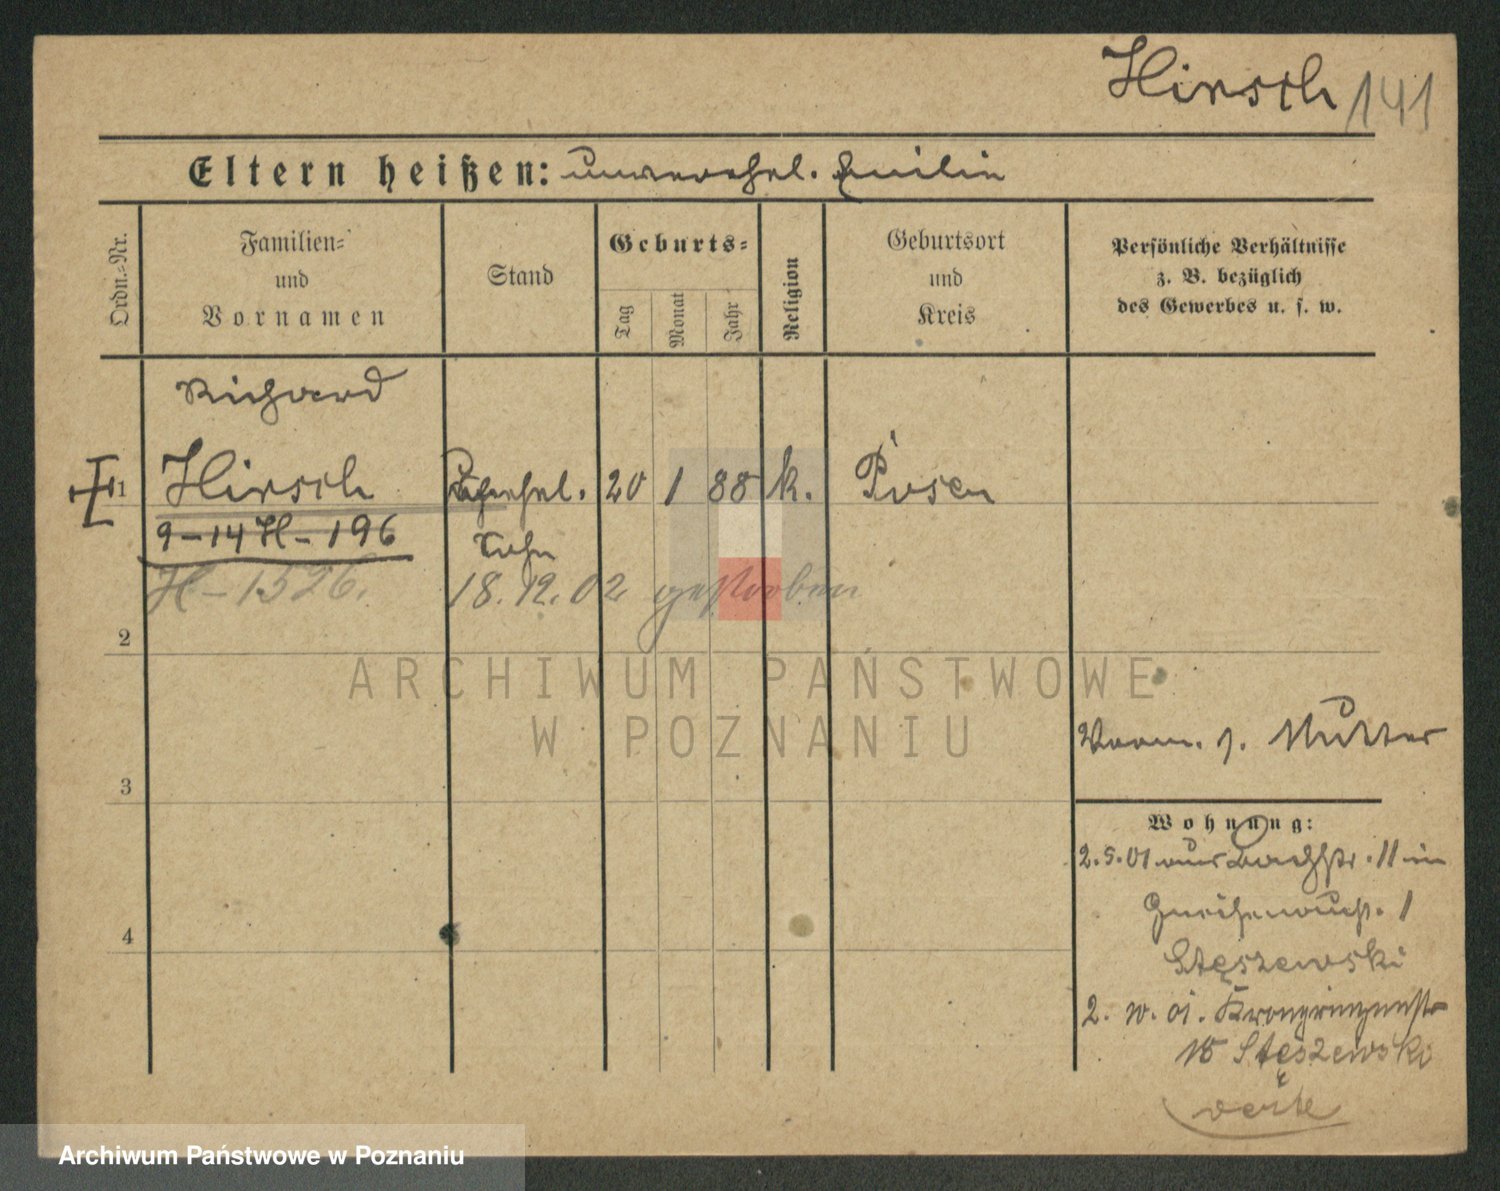 Hirsch 141
Eltern heißen: unverehel. Emilie
Ordn.=Nr.
Familien=
und
Vornamen
Stand
Geburts=
Tag
Monat
Jahr
Religion
Geburtsort
und
Kreis
Persönliche Verhältnisse
z. B. bezüglich
des Gewerbes u. s. w.
Richard
1 Hirsch 20 1 88 k. Posen
9-14 H-196 Sohn
H-1526. 18.12.02 gestorben
2
ARCHIWUM PAŃSTWOWE
W POZNANIU
3
4
Vorm. s. Mutter
Wohnung:
2.5.01 aus Bachstr. 11 in
Gneisenaust. 1
Stęszewski
2. 10. 01. Kronprinzenstr
Stęszewski
Archiwum Państwowe w Poznaniu